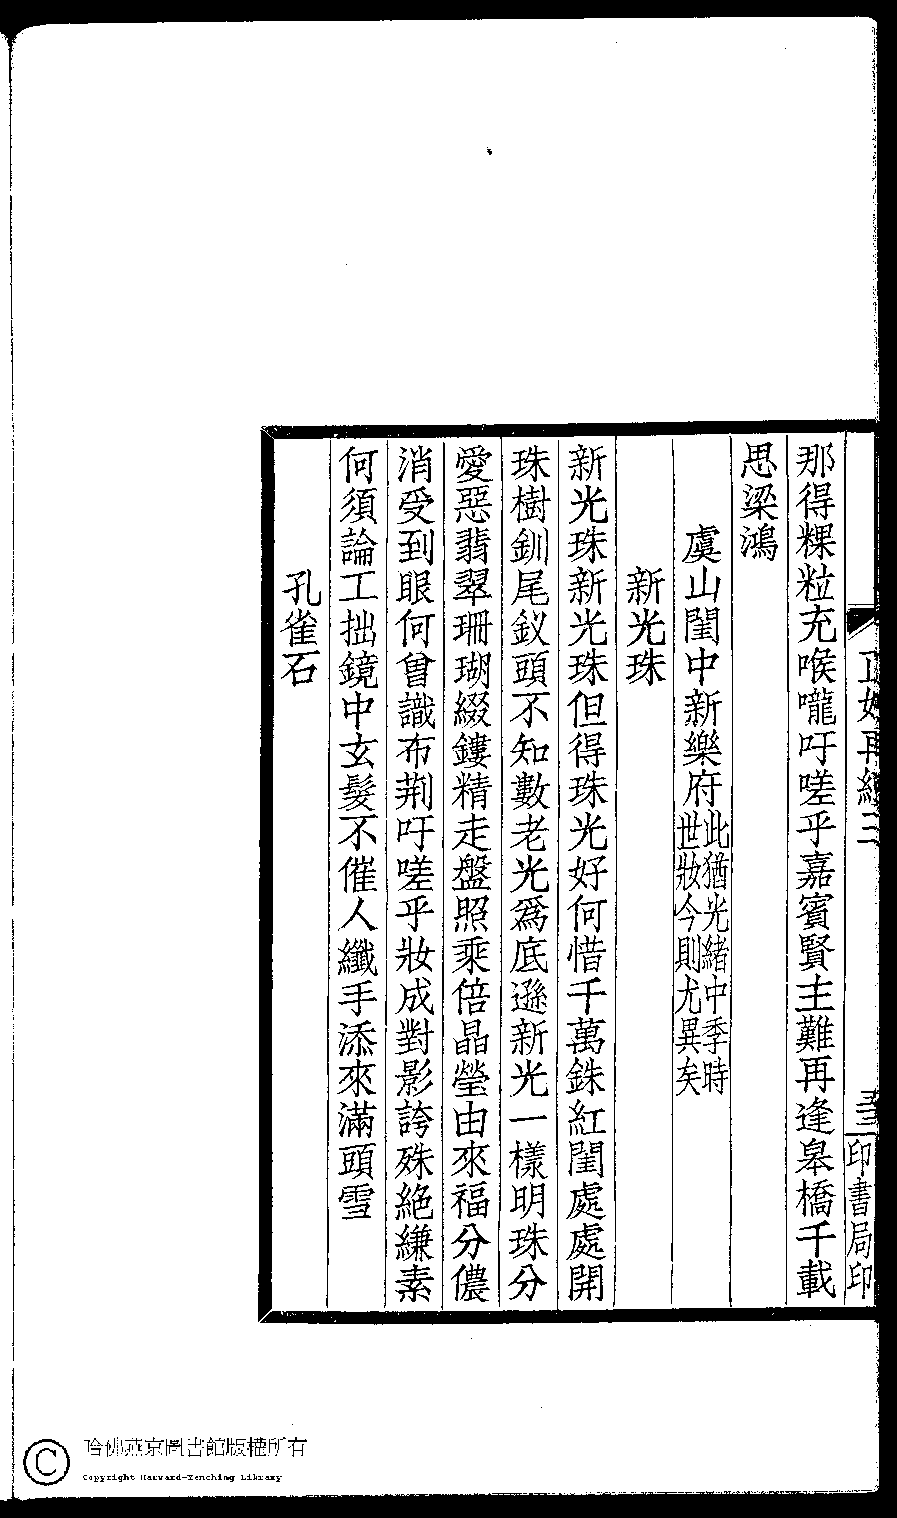 那得粿粒充喉嚨吁嗟乎嘉賓賢主難再逢皋橋千載
思梁鴻
虞山閨中新樂府此猶光緒中季時
世妝今則尤異矣
新光珠
新光珠新光珠但得珠光好何惜千萬銖紅閨處處開
珠樹釧尾釵頭不知數老光爲底遜新光一樣明珠分
愛惡翡翠珊瑚綴鏤精走盤照乘倍晶瑩由來福分儂
消受到眼何曾識布荆吁嗟乎妝成對影誇殊絶縑素
何須論工拙鏡中玄髮不催人纖手添來滿頭雪
孔雀石
再續三
印書局印
哈佛燕京圖書館版權所有
Copyright Harvard-Yenching Library